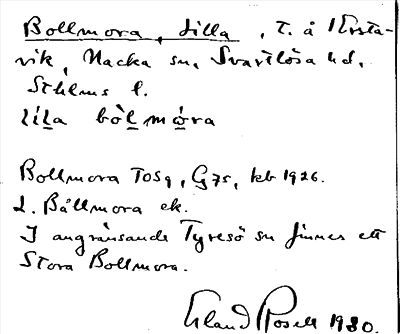 Bollmora, Lilla, T. å Ersta-
vik, Nacka sn, Svartlösa hd,
Sthlms l.
lìla bòl móra
Bollmora TOS9, G7s, kb 1926.
L. Bållmora ek.
I angränsande Tyresö sn finnes ett
Stora Bollmora.
Erland Rosell 1980.